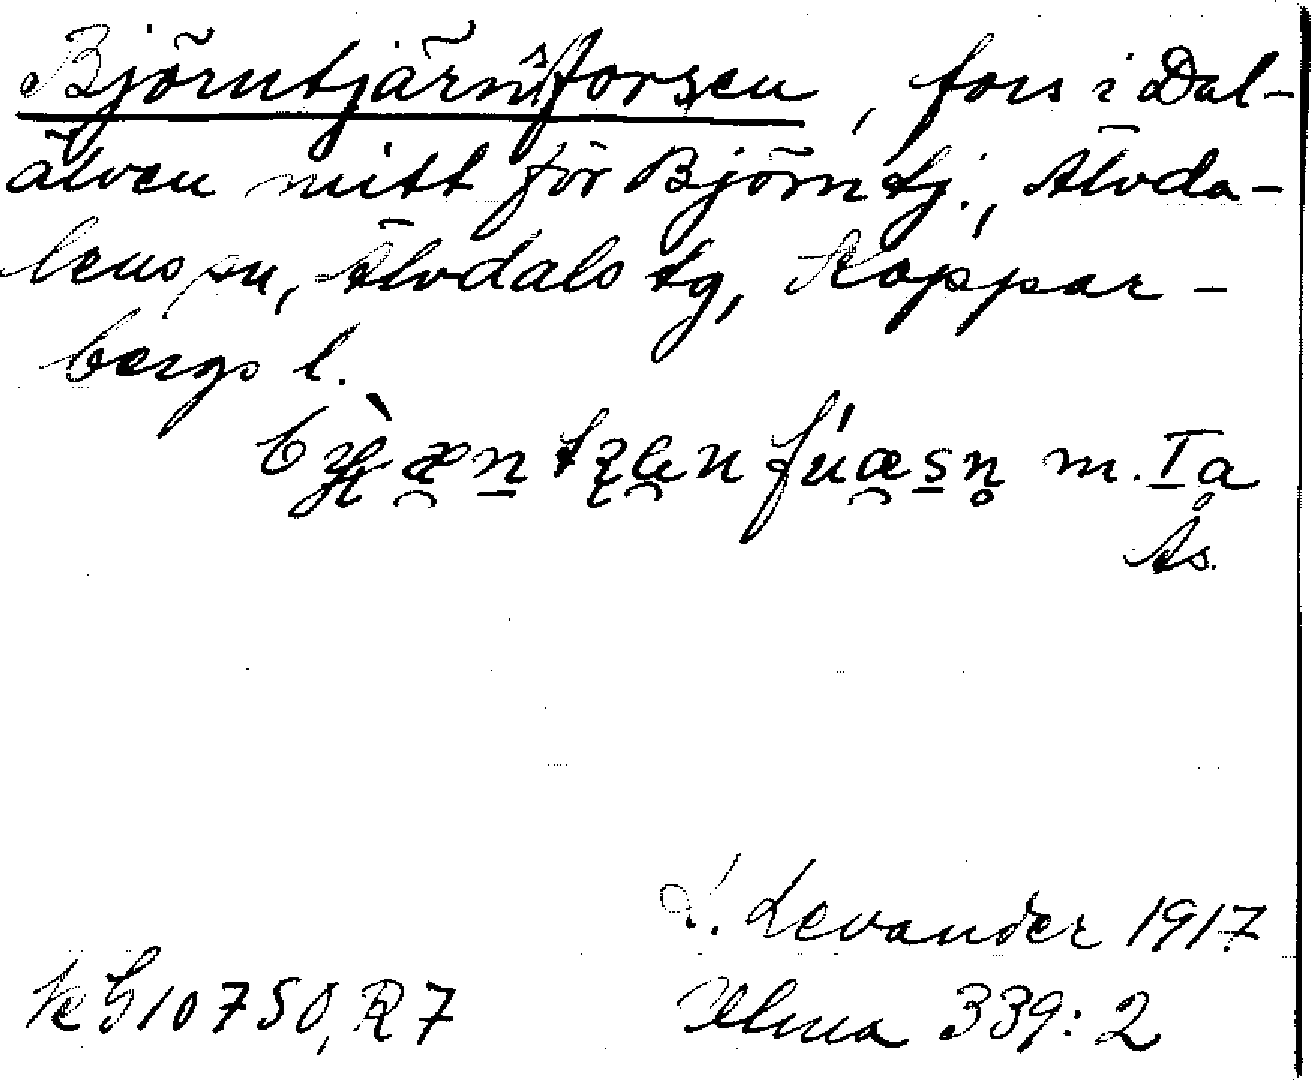 Björntjärnsforsen, fors i Dal-
älven mitt för Björntj., Älvda-
lens sn, Älvdals tg, Koppar-
bergs l.
m. Ia
Ås.
L. Levander 1917
Ulma 339:2